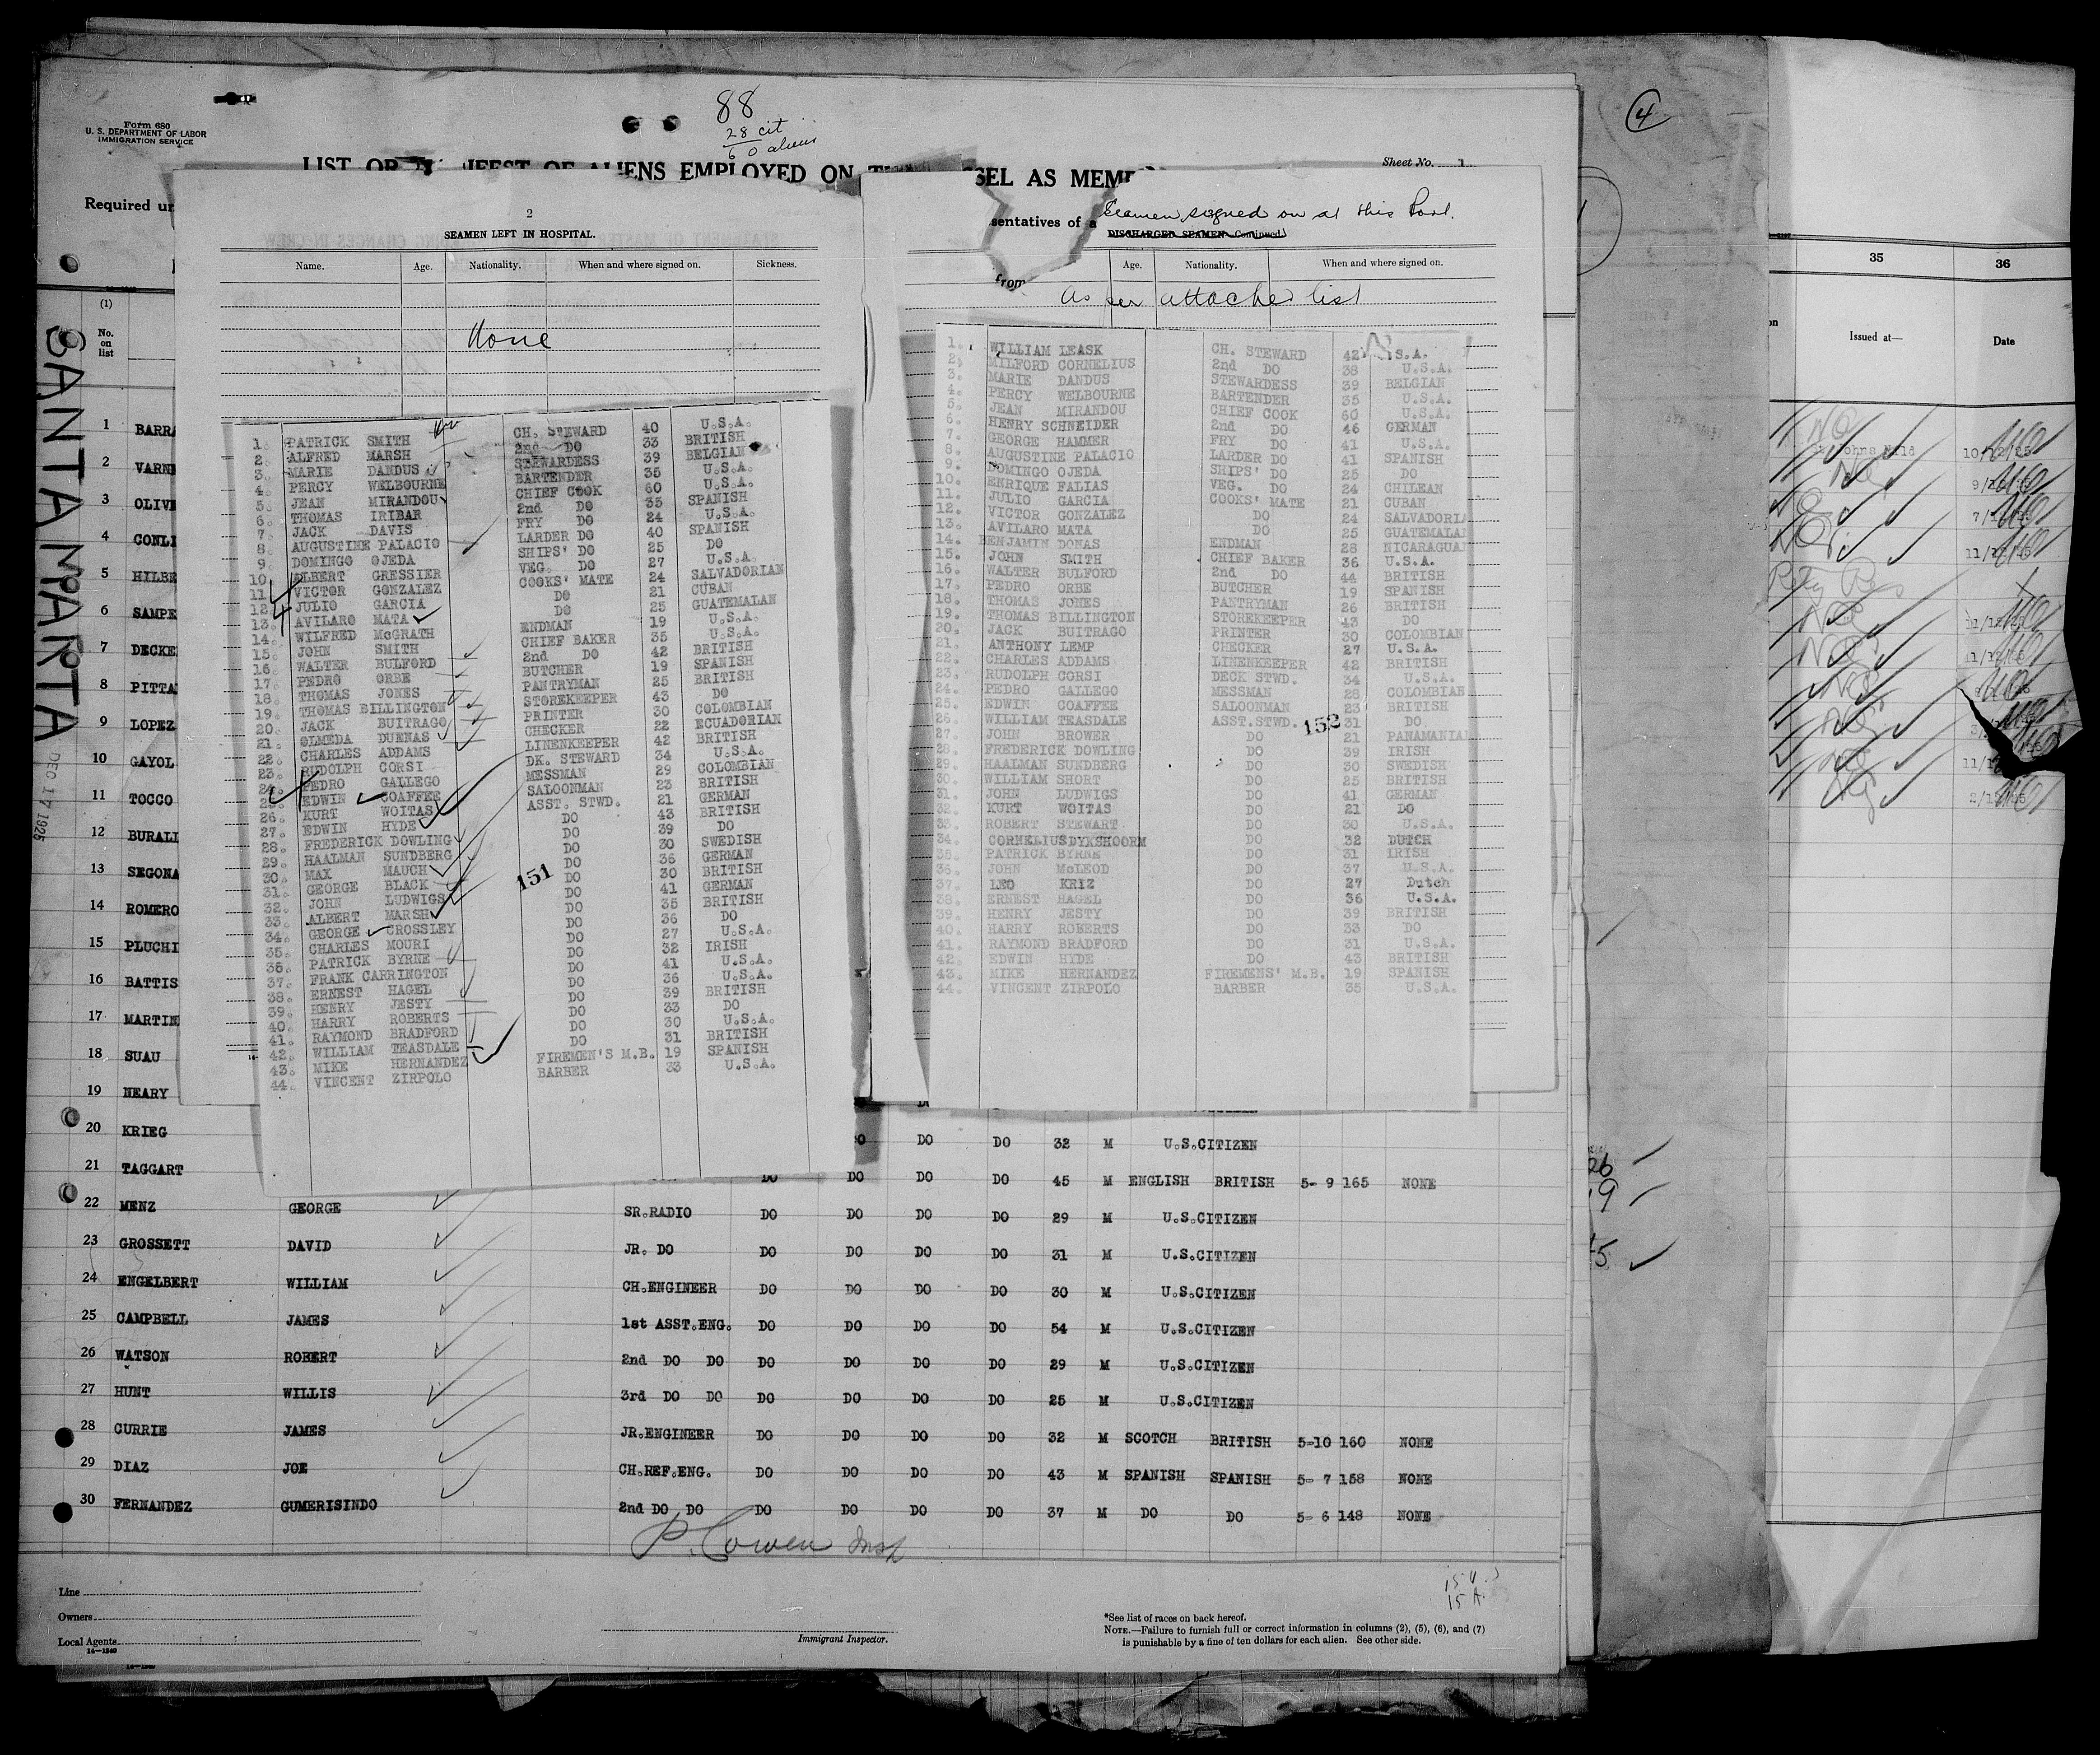 88
28 cit
60 aliens
4
Form 680
U. S. DEPARTMENT OF LABOR
IMMIGRATION SERVICE
LIST OR
IFEST OF ALIENS EMPLOYED ON
SEL AS MEM
Sheet No. 1
Required un
sentatives of a
from
(1)
No. on list
SANTA MARTA
DEC 17 1925
2
SEAMEN LEFT IN HOSPITAL.
Name. Age. Nationality. When and where signed on. Sickness.
None
1. PATRICK SMITH CH. STEWARD 40 U.S.A.
2. ALFRED MARSH 2nd DO 33 BRITISH
3. MARIE DANDUS STEWARDESS 39 BELGIAN
4. PERCY WELBOURNE BARTENDER 35 U.S.A.
5. JEAN MIRANDOU CHIEF COOK 60 U.S.A.
6. THOMAS IRIBAR 2nd DO 35 SPANISH
7. JACK DAVIS FRY DO 24 U.S.A.
8. AUGUSTINE PALACIO LARDER DO 40 SPANISH
9. DOMINGO OJEDA SHIPS' DO 25 DO
10. ALBERT GRESSIER VEG. DO 27 U.S.A.
11. VICTOR GONZALEZ COOKS' MATE 24 SALVADORIAN
12. JULIO GARCIA DO 21 CUBAN
13. AVILARO MATA DO 25 GUATEMALAN
14. WILFRED McGRATH ENDMAN 19 U.S.A.
15. JOHN SMITH CHIEF BAKER 35 U.S.A.
16. WALTER BULFORD 2nd DO 42 BRITISH
17. PEDRO ORBE BUTCHER 19 SPANISH
18. THOMAS JONES PANTRYMAN 25 BRITISH
19. THOMAS BILLINGTON STOREKEEPER 43 DO
20. JACK BUITRAGO PRINTER 30 COLOMBIAN
21. OLMEDA DUENAS CHECKER 22 ECUADORIAN
22. CHARLES ADDAMS LINENKEEPER 42 BRITISH
23. RUDOLPH CORSI DK. STEWARD 34 U.S.A.
24. PEDRO GALLEGO MESSMAN 29 COLOMBIAN
25. EDWIN COAFFEE SALOONMAN 23 BRITISH
26. KURT WOITAS ASST. STWD. 21 GERMAN
27. EDWIN HYDE DO 43 BRITISH
28. FREDERICK DOWLING DO 39 DO
29. HAALMAN SUNDBERG DO 30 SWEDISH
30. MAX MAUCH DO 36 GERMAN
31. GEORGE BLACK DO 30 BRITISH
32. JOHN LUDWIGS DO 41 GERMAN
33. ALBERT MARSH DO 35 BRITISH
34. GEORGE CROSSLEY DO 36 DO
35. CHARLES MOURI DO 27 U.S.A.
36. PATRICK BYRNE DO 32 IRISH
37. FRANK CARRINGTON DO 41 U.S.A.
38. ERNEST HAGEL DO 36 U.S.A.
39. HENRY JESTY DO 39 BRITISH
40. HARRY ROBERTS DO 33 DO
41. RAYMOND BRADFORD DO 30 U.S.A.
42. WILLIAM TEASDALE DO 31 BRITISH
43. MIKE HERNANDEZ FIREMEN'S M.B. 19 SPANISH
44. VINCENT ZIRPOLO BARBER 33 U.S.A.
151
Seamen signed on at this Port.
DISCHARGED SEAMEN—Continued
Age. Nationality. When and where signed on.
As per attached list
1. WILLIAM LEASK CH. STEWARD 42 U.S.A.
2. MILFORD CORNELIUS 2nd DO 38 U.S.A.
3. MARIE DANDUS STEWARDESS 39 BELGIAN
4. PERCY WELBOURNE BARTENDER 35 U.S.A.
5. JEAN MIRANDOU CHIEF COOK 60 U.S.A.
6. HENRY SCHNEIDER 2nd DO 46 GERMAN
7. GEORGE HAMMER FRY DO 41 U.S.A.
8. AUGUSTINE PALACIO LARDER DO 41 SPANISH
9. DOMINGO OJEDA SHIPS' DO 25 DO
10. ENRIQUE FALIAS VEG. DO 24 CHILEAN
11. JULIO GARCIA COOKS' MATE 21 CUBAN
12. VICTOR GONZALEZ DO 24 SALVADORIA
13. AVILARO MATA DO 25 GUATEMALAN
14. BENJAMIN DONAS ENDMAN 28 NICARAGUAN
15. JOHN SMITH CHIEF BAKER 36 U.S.A.
16. WALTER BULFORD 2nd DO 44 BRITISH
17. PEDRO ORBE BUTCHER 19 SPANISH
18. THOMAS JONES PANTRYMAN 26 BRITISH
19. THOMAS BILLINGTON STOREKEEPER 43 DO
20. JACK BUITRAGO PRINTER 30 COLOMBIAN
21. ANTHONY LEMP CHECKER 27 U.S.A.
22. CHARLES ADDAMS LINENKEEPER 42 BRITISH
23. RUDOLPH CORSI DECK STWD. 34 U.S.A.
24. PEDRO GALLEGO MESSMAN 28 COLOMBIAN
25. EDWIN COAFFEE SALOONMAN 23 BRITISH
26. WILLIAM TEASDALE ASST.STWD. 31 DO
27. JOHN BROWER DO 21 PANAMANIAN
28. FREDERICK DOWLING DO 39 IRISH
29. HAALMAN SUNDBERG DO 30 SWEDISH
30. WILLIAM SHORT DO 25 BRITISH
31. JOHN LUDWIGS DO 41 GERMAN
32. KURT WOITAS DO 21 DO
33. ROBERT STEWART DO 30 U.S.A.
34. CORNELIUS DYKSHOORM DO 32 DUTCH
35. PATRICK BYRNE DO 31 IRISH
36. JOHN McLEOD DO 37 U.S.A.
37. LEO KRIZ DO 27 Dutch
38. ERNEST HAGEL DO 36 U.S.A.
39. HENRY JESTY DO 39 BRITISH
40. HARRY ROBERTS DO 33 DO
41. RAYMOND BRADFORD DO 31 U.S.A.
42. EDWIN HYDE DO 43 BRITISH
43. MIKE HERNANDEZ FIREMENS' M.B. 19 SPANISH
44. VINCENT ZIRPOLO BARBER 35 U.S.A.
152
1 BARRA
2 VARN
3 OLIVE
4 CONLI
5 HILBE
6 SAMPE
7 DECKE
8 PITTA
9 LOPEZ
10 GAYOL
11 TOCCO
12 BURALI
13 SEGONA
14 ROMERO
15 PLUCHI
16 BATTIS
17 MARTIN
18 SUAU
19 NEARY
20 KRIEG DO DO DO 32 M U.S.CITIZEN
21 TAGGART DO DO DO 45 M ENGLISH BRITISH 5- 9 165 NONE
22 MENZ GEORGE SR.RADIO DO DO DO 29 M U.S.CITIZEN
23 GROSSETT DAVID JR. DO DO DO DO 31 M U.S.CITIZEN
24 ENGELBERT WILLIAM CH.ENGINEER DO DO DO 30 M U.S.CITIZEN
25 CAMPBELL JAMES 1st ASST.ENG. DO DO DO 54 M U.S.CITIZEN
26 WATSON ROBERT 2nd DO DO DO DO DO 29 M U.S.CITIZEN
27 HUNT WILLIS 3rd DO DO DO DO DO 25 M U.S.CITIZEN
28 CURRIE JAMES JR.ENGINEER DO DO DO 32 M SCOTCH BRITISH 5-10 160 NONE
29 DIAZ JOE CH.REF.ENG. DO DO DO 43 M SPANISH SPANISH 5- 7 158 NONE
30 FERNANDEZ GUMERISINDO 2nd DO DO DO DO DO 37 M DO DO 5- 6 148 NONE
P. Cowen Insp
Line
Owners
Local Agents
14—1240
Immigrant Inspector.
*See list of races on back hereof.
NOTE.—Failure to furnish full or correct information in columns (2), (5), (6), and (7)
is punishable by a fine of ten dollars for each alien. See other side.
35 36
Issued at— Date